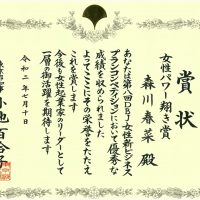 賞状
女性パワー翔き賞
森川春菜殿
あなたは第八回DBJ女性新ビジネス
プランコンペティションにおいて優秀な
成績を収められました
よってここにその栄誉をたたえ
これを賞します
今後も女性起業家のリーダーとして
一層の御活躍を期待します
令和二年七月十日
東京都知事 小池百合子